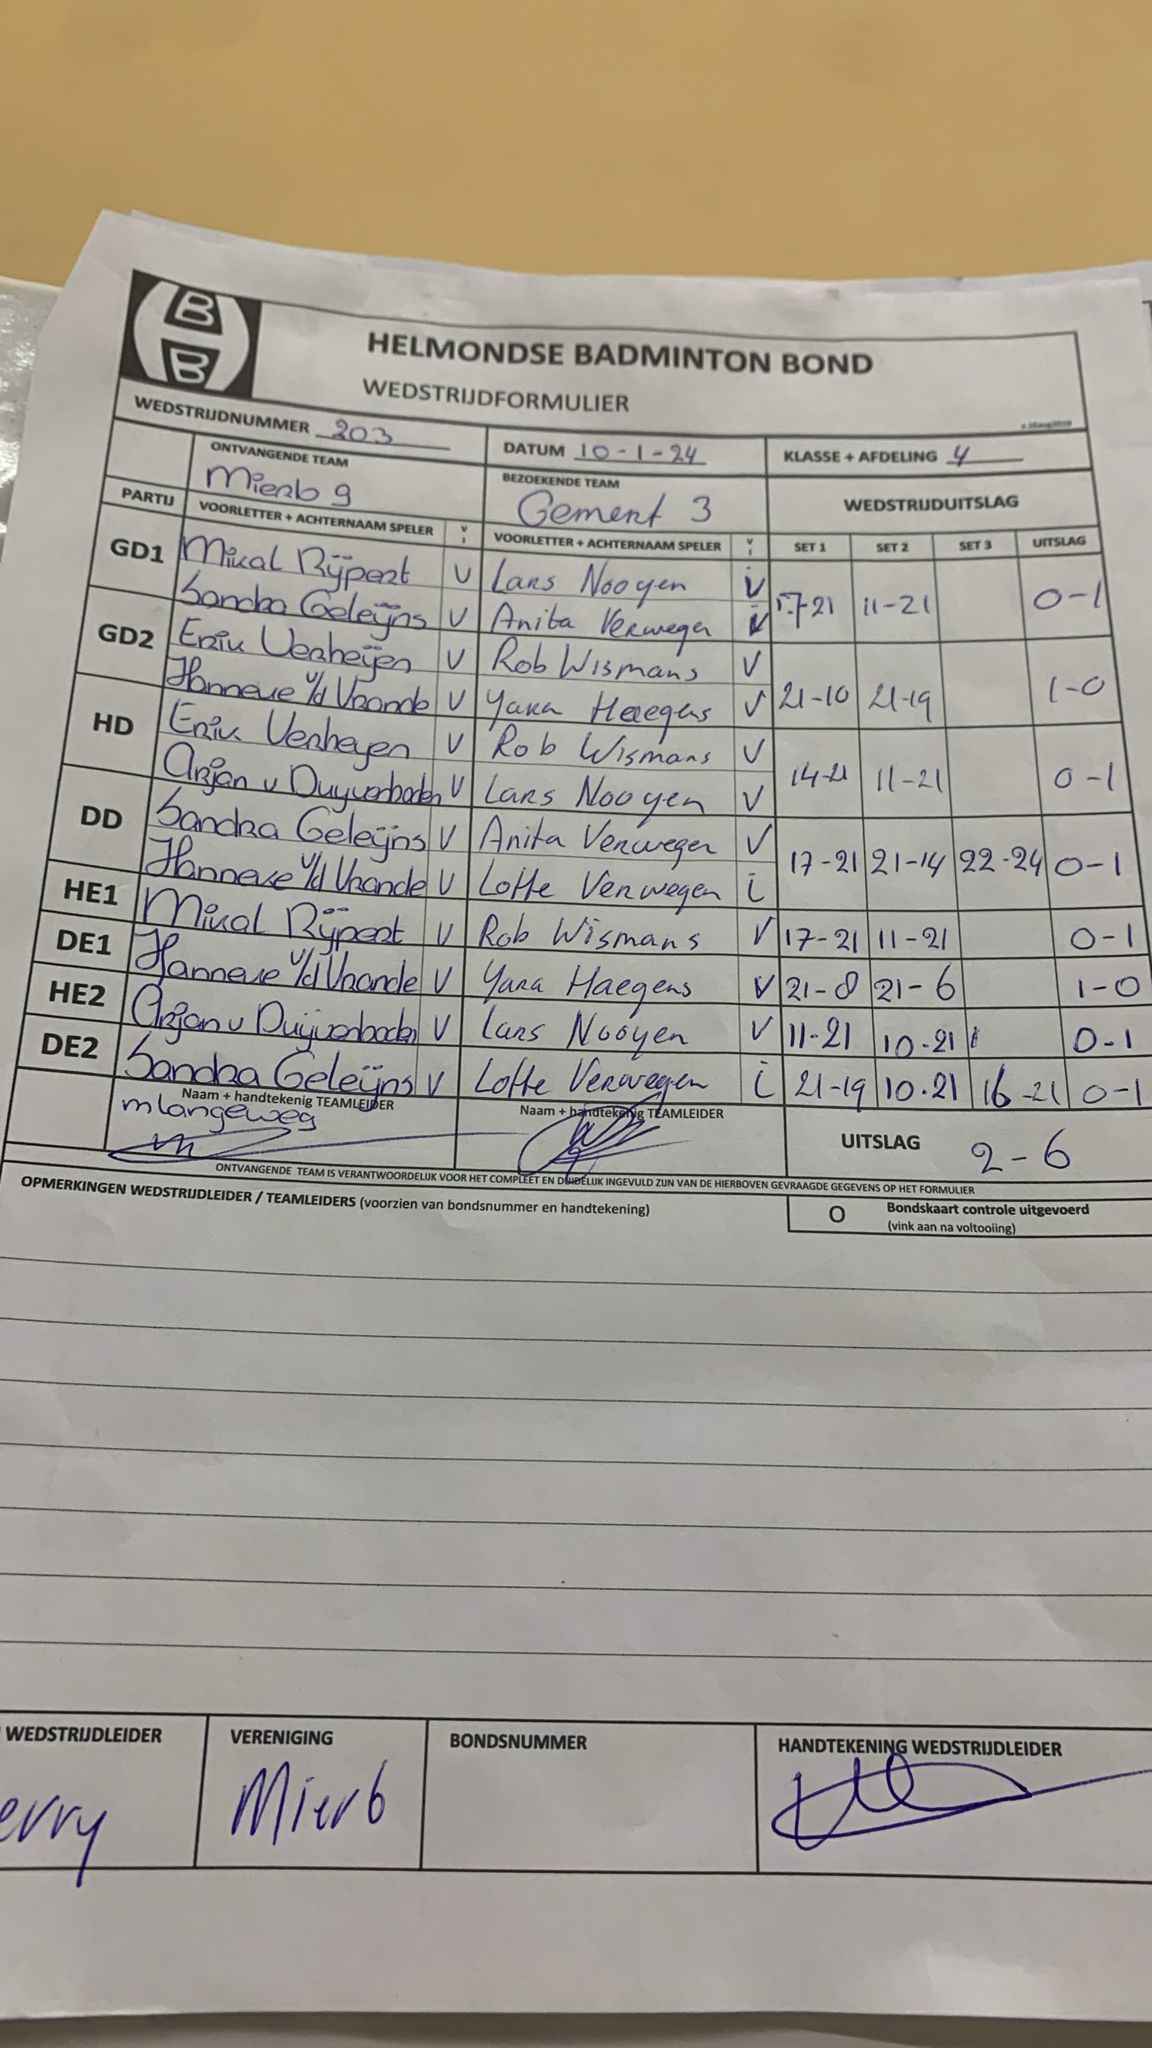 B
B
HELMONDSE BADMINTON BOND
WEDSTRIJDFORMULIER
WEDSTRIJDNUMMER 203 DATUM 10-1-24 KLASSE + AFDELING 4
ONTVANGENDE TEAM BEZOEKENDE TEAM WEDSTRIJDUITSLAG
Mierlo 9 Gemert 3
PARTIJ VOORLETTER + ACHTERNAAM SPELER V I VOORLETTER + ACHTERNAAM SPELER V I SET 1 SET 2 SET 3 UITSLAG
GD1 Mical Rijpert V Lars Nooyen V 17-21 11-21 0-1
Sandra Geleijns V Anita Verwegen V
GD2 Erik Verheijen V Rob Wismans V 21-10 21-19 1-0
Hanneke v/d Vrande V Yara Haegens V
HD Erik Verheyen V Rob Wismans V 14-21 11-21 0-1
Arjan v Duyvenboden V Lars Nooyen V
DD Sandra Geleijns V Anita Verwegen V 17-21 21-14 22-24 0-1
Hanneke v/d Vrande V Lotte Verwegen i
HE1 Mical Rijpert V Rob Wismans V 17-21 11-21 0-1
DE1 Hanneke v/d Vrande V Yara Haegens V 21-8 21-6 1-0
HE2 Arjan v Duijvenboden V Lars Nooyen V 11-21 10-21 0-1
DE2 Sandra Geleijns V Lotte Verwegen i 21-19 10-21 16-21 0-1
Naam + handtekenig TEAMLEIDER Naam + handtekenig TEAMLEIDER UITSLAG 2-6
mlangeweg
ONTVANGENDE TEAM IS VERANTWOORDELIJK VOOR HET COMPLEET EN DUIDELIJK INGEVULD ZIJN VAN DE HIERBOVEN GEVRAAGDE GEGEVENS OP HET FORMULIER
OPMERKINGEN WEDSTRIJDLEIDER / TEAMLEIDERS (voorzien van bondsnummer en handtekening)
O Bondskaart controle uitgevoerd
(vink aan na voltooiing)
WEDSTRIJDLEIDER VERENIGING BONDSNUMMER HANDTEKENING WEDSTRIJDLEIDER
erry Mierlo